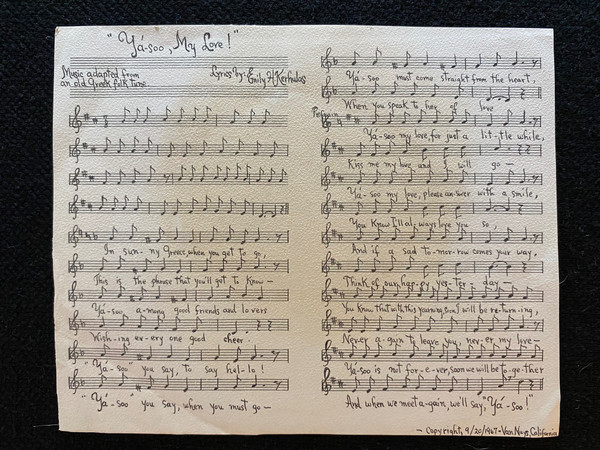 "Yá-soo, My Love!"
Music adapted from
an old Greek folk tune
Lyrics by: Emily H. Kerhulas
In sun-ny Greece, when you get to go,
This is the phrase that you'll get to know —
Yá-soo, a-mong good friends and lovers
Wish-ing ev-ery one good cheer.
"Yá-soo" you say, to say hel-lo!
"Yá-soo" you say, when you must go —
Yá-soo must come straight from the heart,
When you speak to her of love
Yá-soo my love, for just a lit-tle while,
Kiss me my love and I will go —
Yá-soo my love, please an-swer with a smile,
You know I'll al-ways love you so,
And if a sad to-mor-row comes your way,
Think of our hap-py yes-ter-day —
You know that with this yearning, soon I will be re-turn-ing,
Never a-gain to leave you, nev-er my love —
Yá-soo is not for-e-ver, soon we will be to-ge-ther
And when we meet a-gain, we'll say, "Yá-soo!"
— Copyright, 9/20/1967 - Van Nuys, California